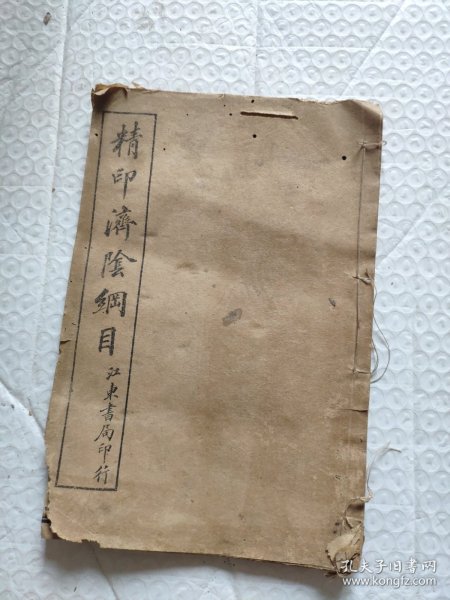 精印濟陰綱目
江東書局印行
孔夫子旧书网
www.kongfz.com